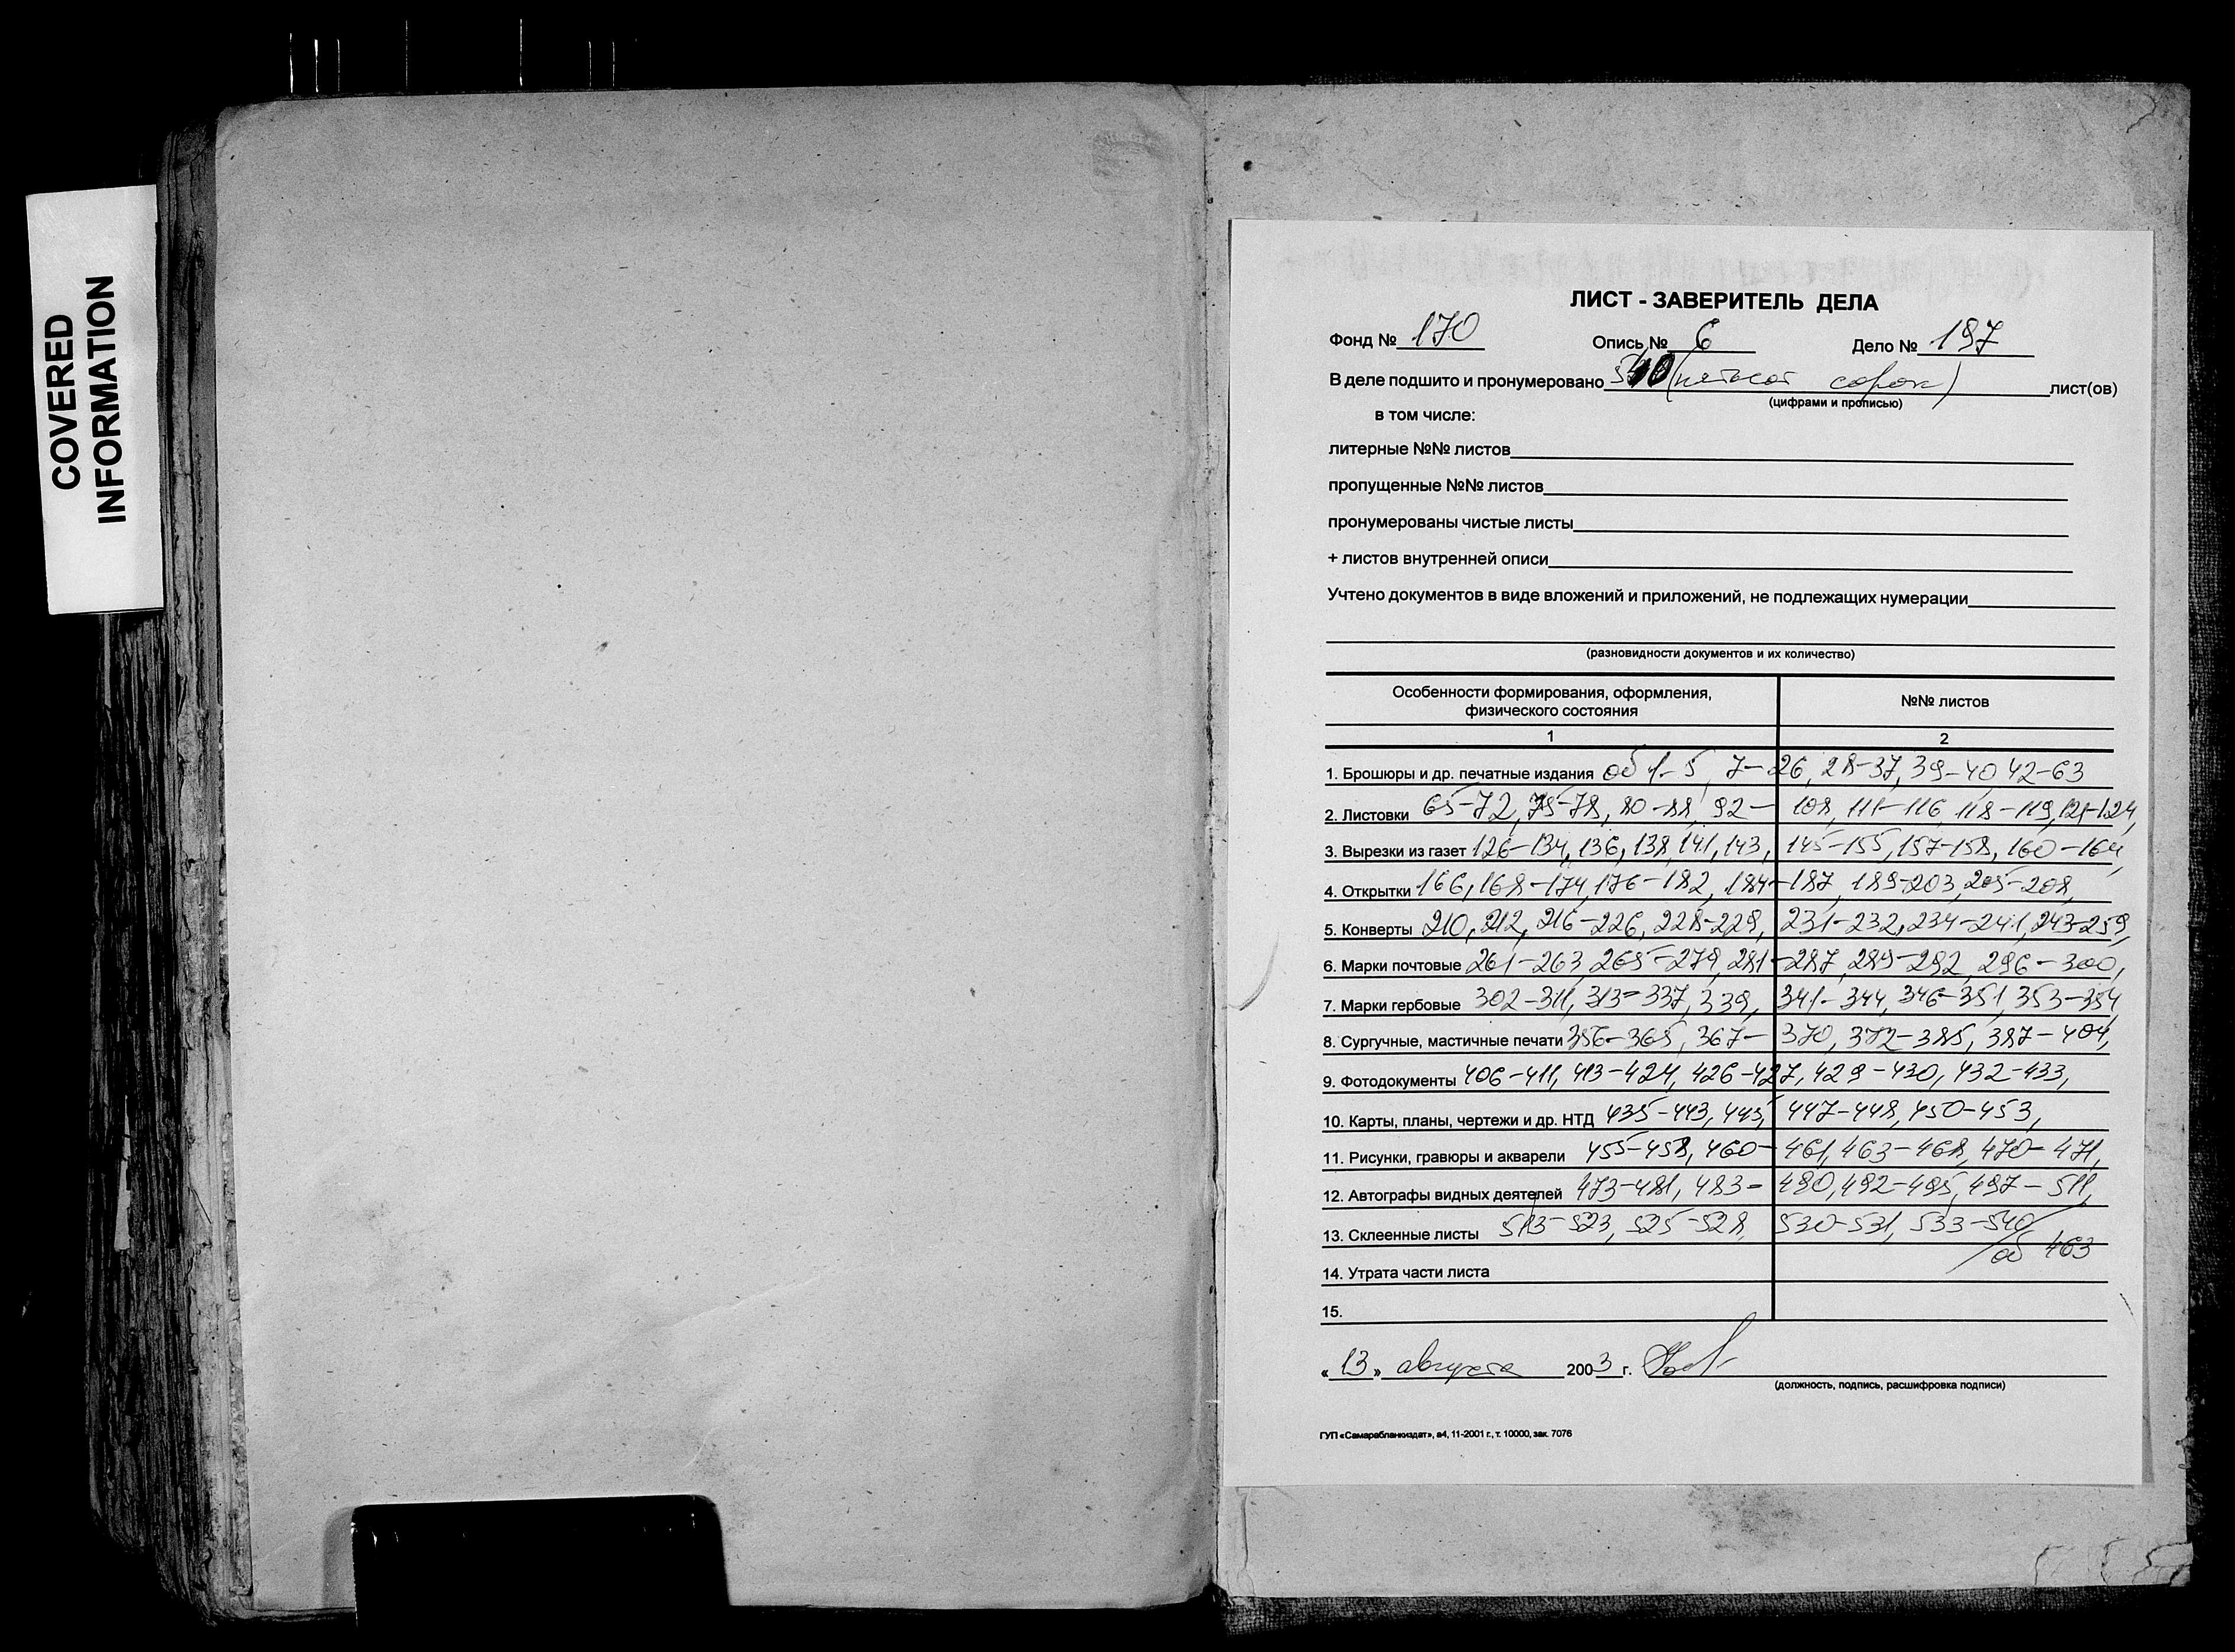 COVERED
INFORMATION
ЛИСТ - ЗАВЕРИТЕЛЬ ДЕЛА
Фонд № 170 Опись № 6 Дело № 197
В деле подшито и пронумеровано 540 (пятьсот сорок) лист(ов)
(цифрами и прописью)
в том числе:
литерные №№ листов
пропущенные №№ листов
пронумерованы чистые листы
+ листов внутренней описи
Учтено документов в виде вложений и приложений, не подлежащих нумерации
(разновидности документов и их количество)
Особенности формирования, оформления, физического состояния №№ листов
1 2
1. Брошюры и др. печатные издания об 1-5, 7-26, 28-37, 39-40, 42-63
2. Листовки 65-72, 75-78, 80-88, 92-108, 111-116, 118-119, 121-124,
3. Вырезки из газет 126-134, 136, 138, 141, 143, 145-155, 157-158, 160-164,
4. Открытки 166, 168-174, 176-182, 184-187, 189-203, 205-208,
5. Конверты 210, 212, 216-226, 228-229, 231-232, 234-241, 243-259,
6. Марки почтовые 261-263, 265-279, 281-287, 289-292, 296-300,
7. Марки гербовые 302-311, 313-337, 339, 341-344, 346-351, 353-354,
8. Сургучные, мастичные печати 356-365, 367-370, 372-385, 387-404,
9. Фотодокументы 406-411, 413-424, 426-427, 429-430, 432-433,
10. Карты, планы, чертежи и др. НТД 435-443, 445, 447-448, 450-453,
11. Рисунки, гравюры и акварели 455-458, 460-461, 463-468, 470-471,
12. Автографы видных деятелей 473-481, 483-490, 492-495, 497-511,
13. Склеенные листы 513-523, 525-528, 530-531, 533-540
об 463
14. Утрата части листа
15.
«13» августа 2003 г.
(должность, подпись, расшифровка подписи)
ГУП «Самарабланкиздат», а4, 11-2001 г., т. 10000, зак. 7076